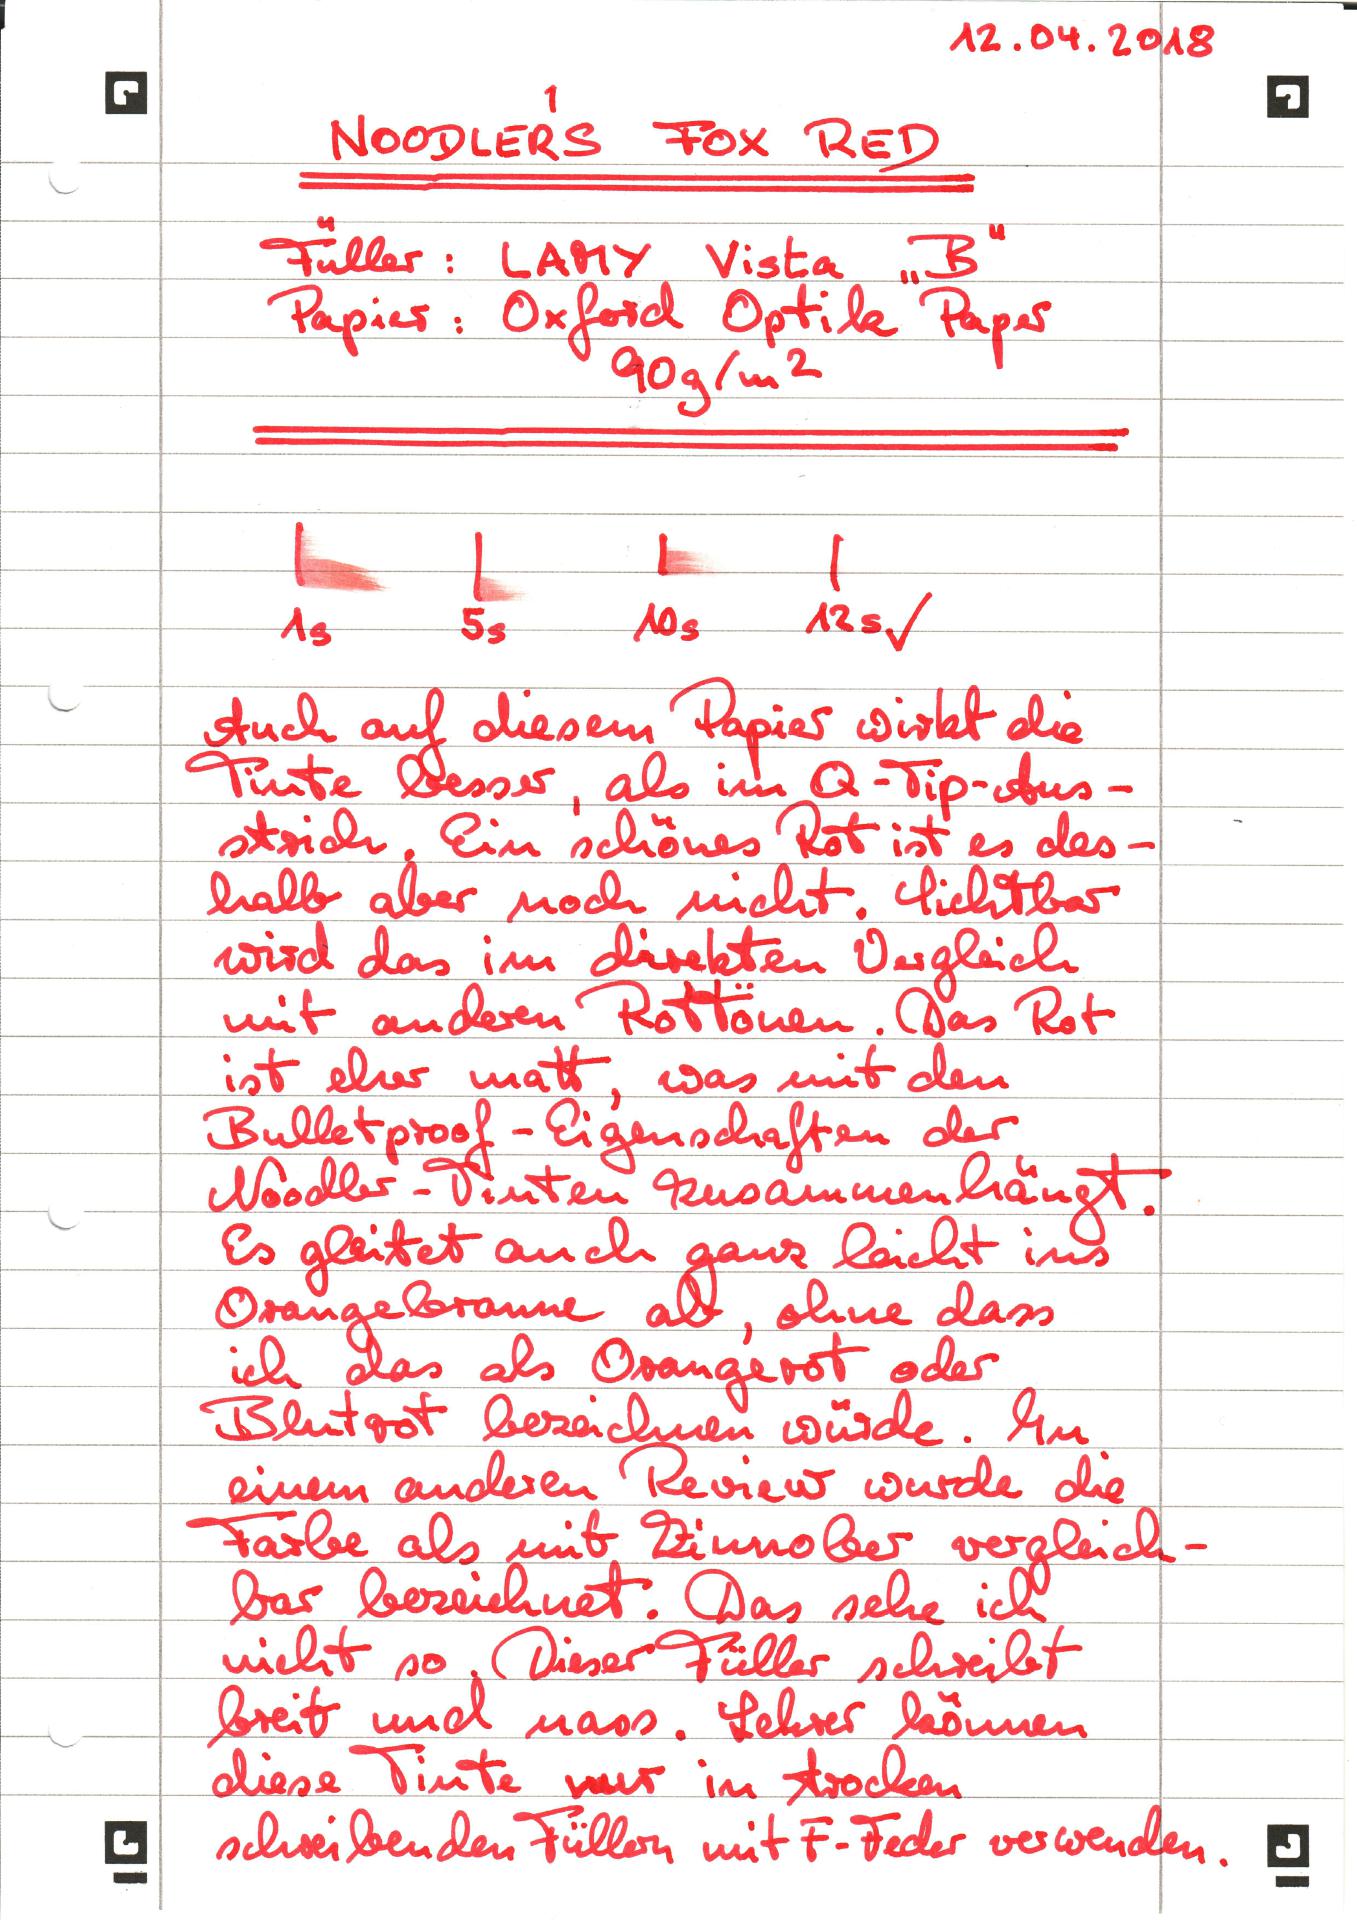 12.04.2018
NOODLER'S FOX RED
Füller: LAMY Vista „B“
Papier: Oxford Optik Paper
90g/m²
1s 5s 10s 12s✓
Auch auf diesem Papier wirkt die
Tinte besser, als im Q-Tip-Aus-
strich. Ein schönes Rot ist es des-
halb aber noch nicht. Sichtbar
wird das im direkten Vergleich
mit anderen Rottönen. Das Rot
ist eher matt, was mit den
Bulletproof-Eigenschaften der
Noodler-Tinten zusammenhängt.
Es gleitet auch ganz leicht ins
Orangebraune ab, ohne dass
ich das als Orangerot oder
Blutrot bezeichnen würde. In
einem anderen Review wurde die
Farbe als mit Zinnober vergleich-
bar bezeichnet. Das sehe ich
nicht so. Dieser Füller schreibt
breit und nass. Lehrer können
diese Tinte nur in trocken
schreibenden Füllern mit F-Feder verwenden.